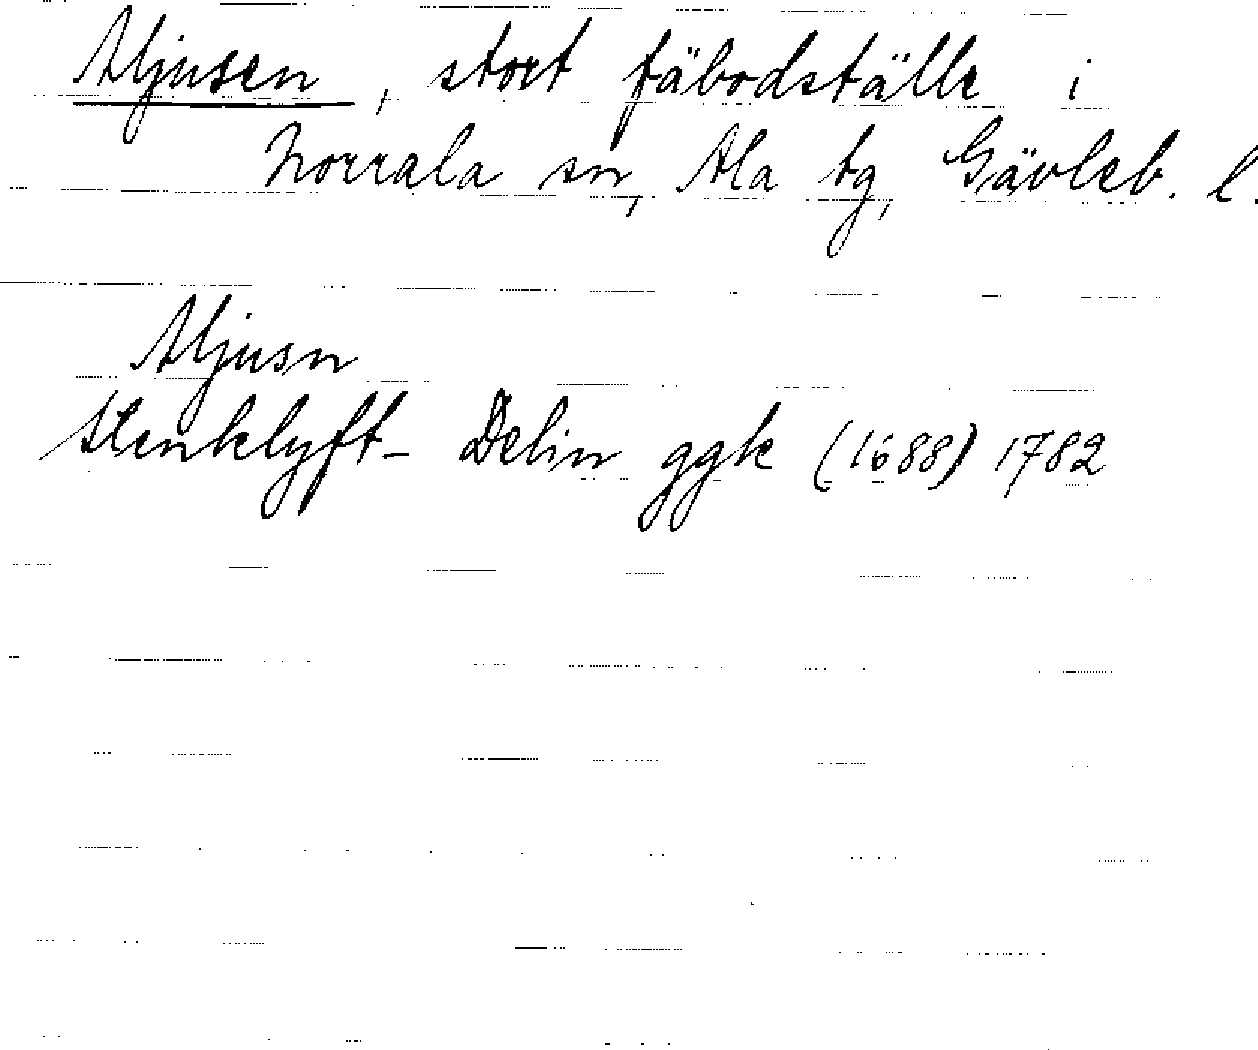 Aljusen, stort fäbodställe i
Norrala sn, Ala tg, Gävleb. l.
Aljusn
Stenklyft- Delin ggk (1688) 1782